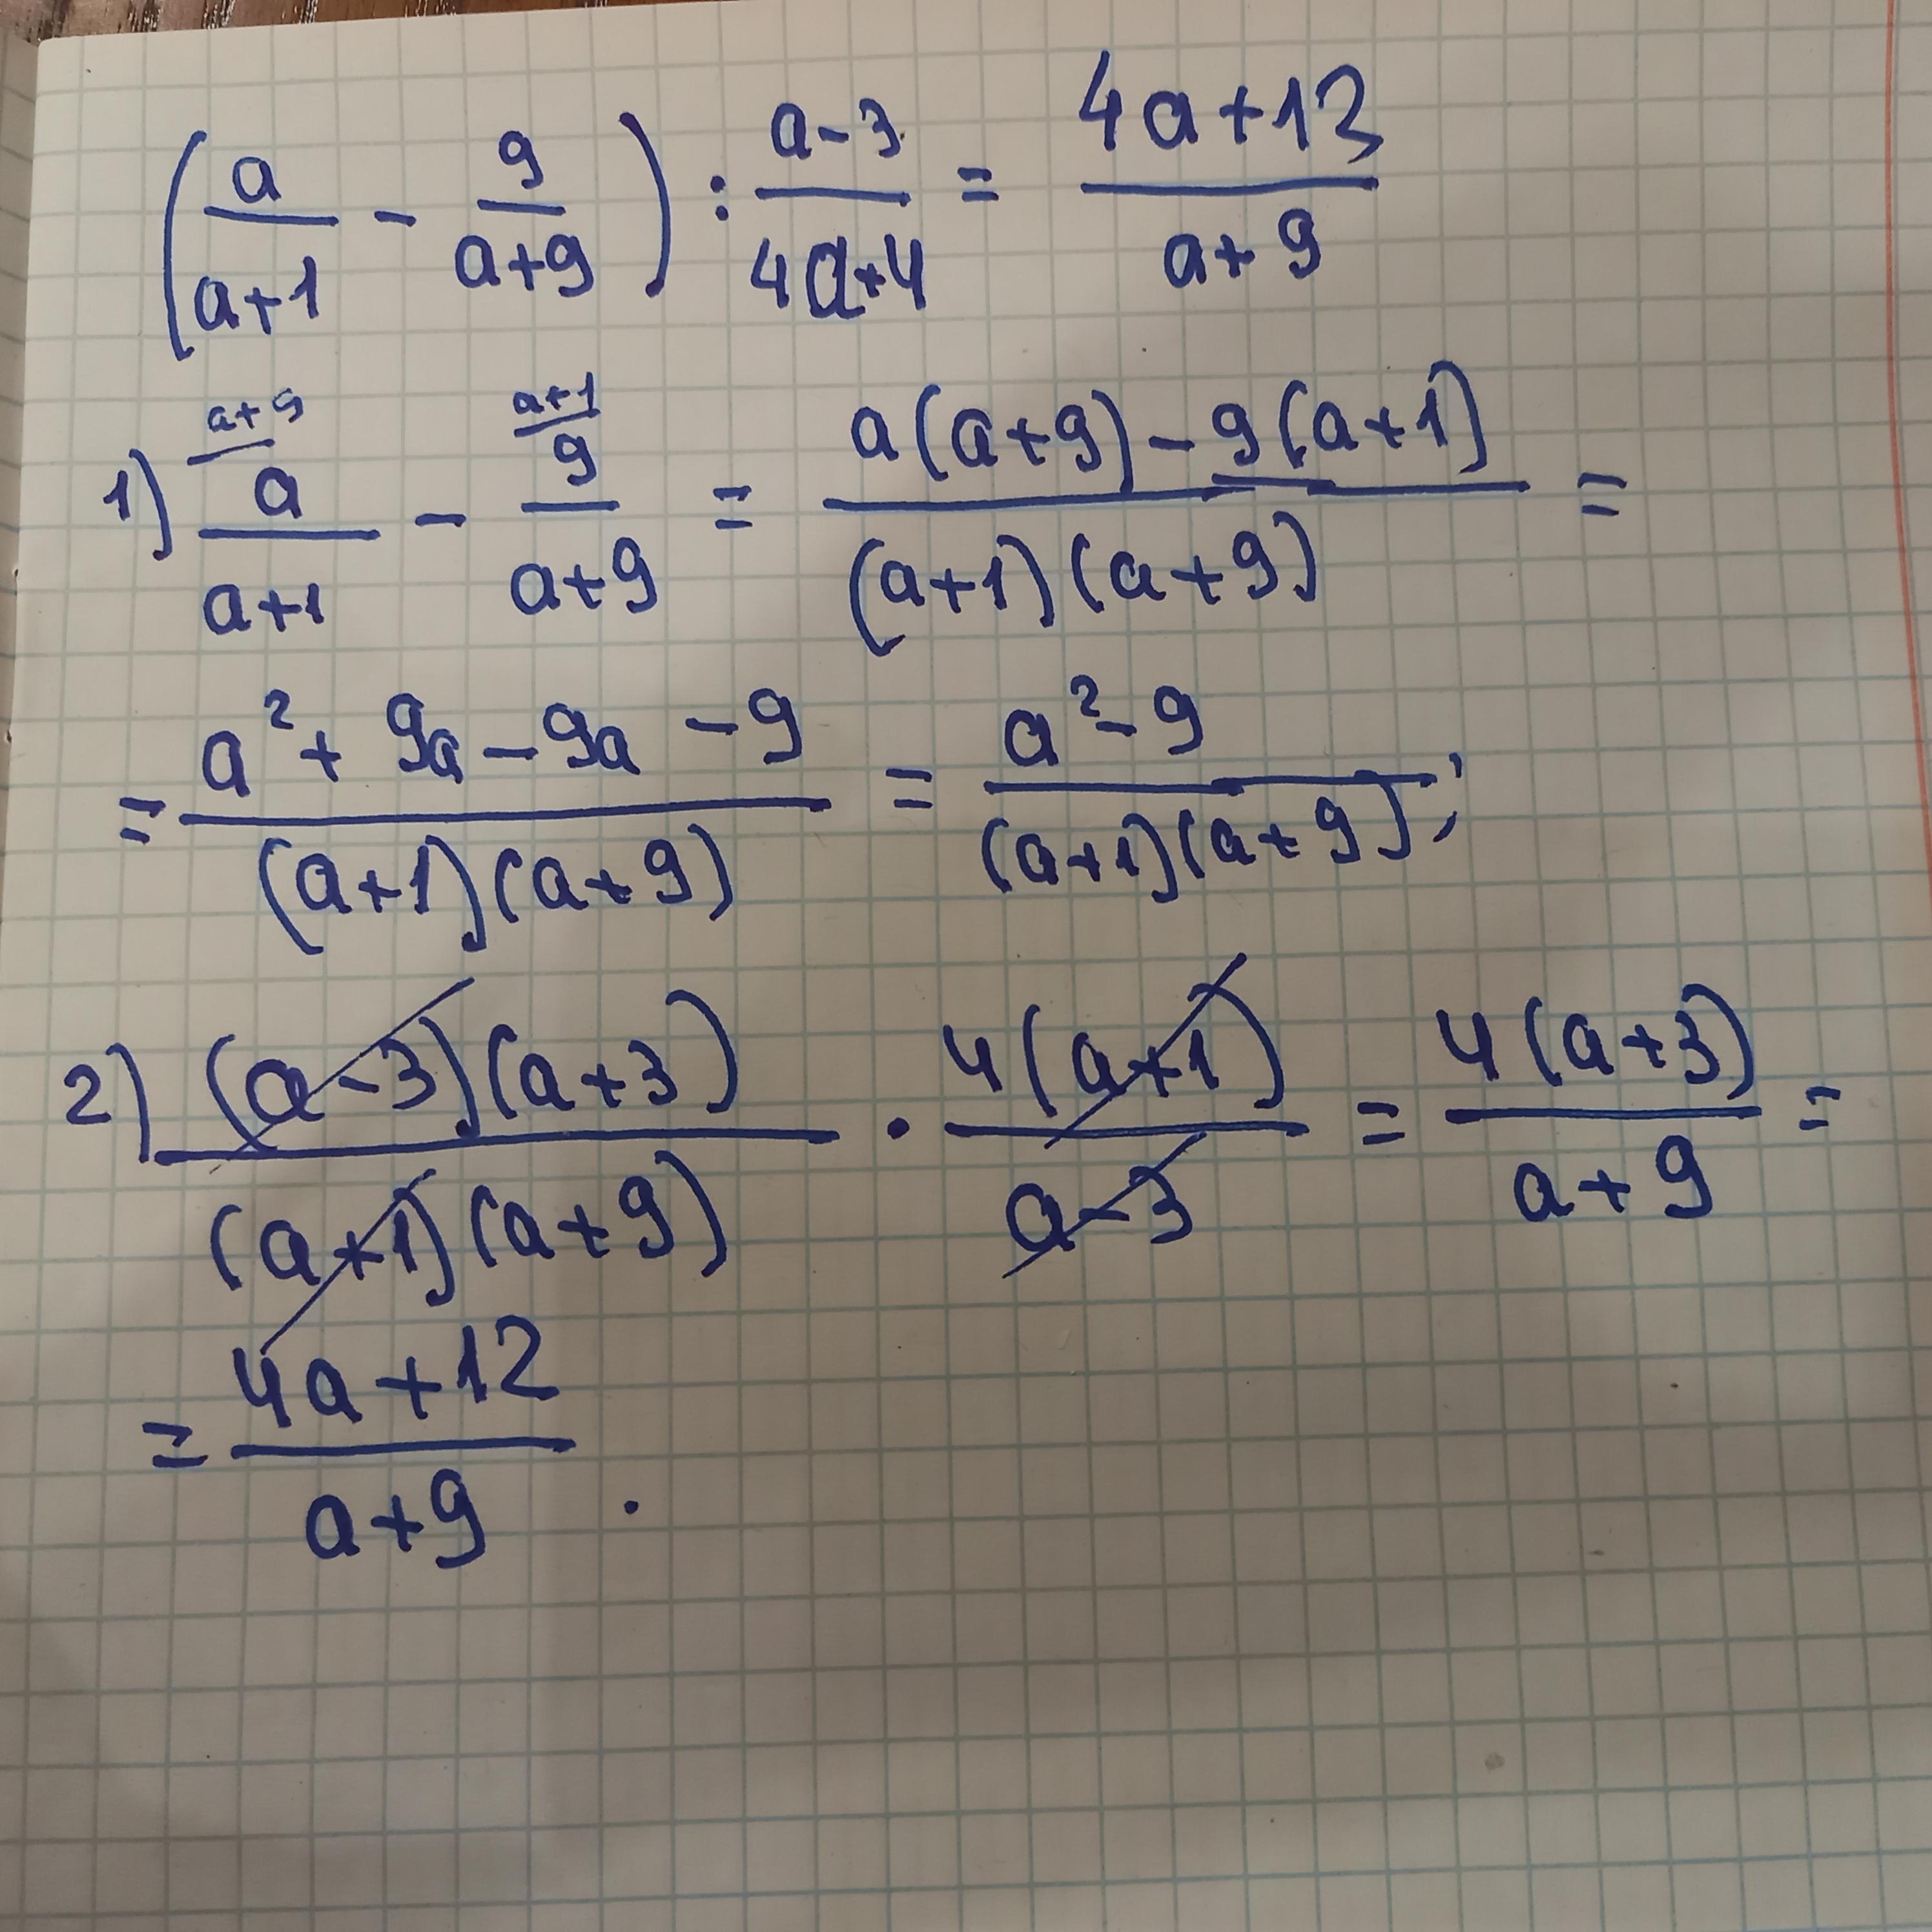 (a/(a+1) - 9/(a+9)) : (a-3)/(4a+4) = (4a+12)/(a+9)
1) a+9 a/(a+1) - a+1 9/(a+9) = (a(a+9)-9(a+1))/((a+1)(a+9)) =
= (a²+9a-9a-9)/((a+1)(a+9)) = (a²-9)/((a+1)(a+9));
2) ((a-3)(a+3))/((a+1)(a+9)) · (4(a+1))/(a-3) = (4(a+3))/(a+9) =
= (4a+12)/(a+9).